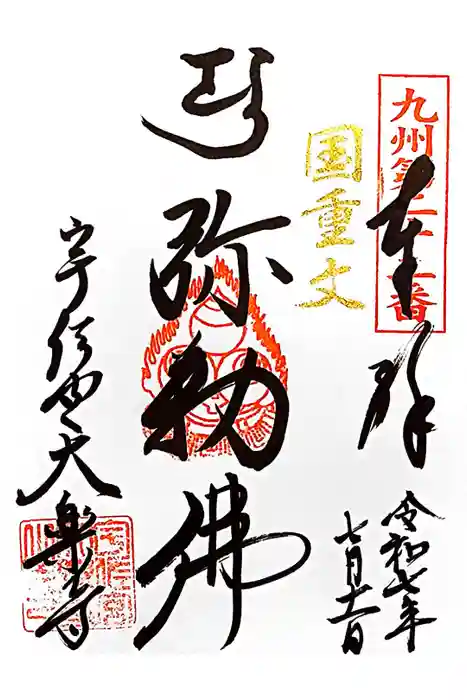 九州第二十番
奉拝
令和七年
七月十一日
国重文
弥勒佛
宇佐宮大楽寺